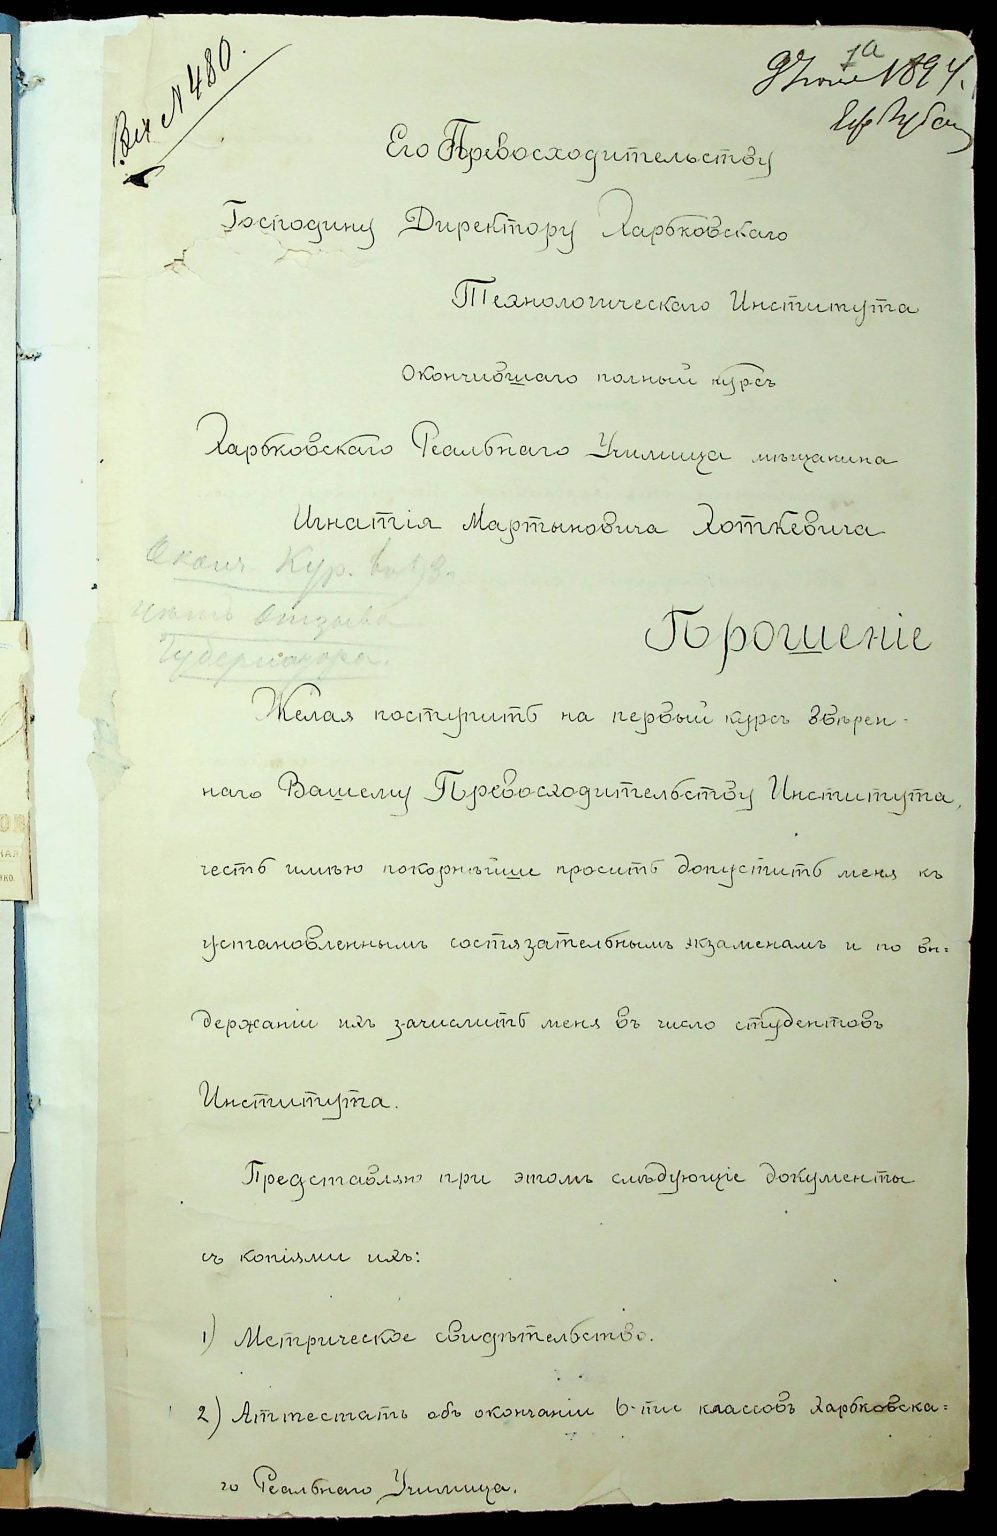 Вх № 480.
1а
9 Іюня 1894.
Его Превосходительству
Господину Директору Харьковскаго
Технологическаго Института
окончившаго полный курсъ
Харьковскаго Реальнаго Училища мѣщанина
Игнатія Мартыновича Хоткевича
Оконч. Кур. въ 93.
Имѣть отзывъ
Губернатора.
Прошеніе
Желая поступить на первый курсъ ввѣрен-
наго Вашему Превосходительству Института,
честь имѣю покорнѣйше просить допустить меня къ
установленнымъ состязательнымъ экзаменамъ и по вы=
держаніи ихъ зачислить меня въ число студентовъ
Института.
Представляю при этомъ слѣдующіе документы
съ копіями ихъ:
1) Метрическое свидѣтельство.
2) Аттестатъ объ окончаніи 6-ти классовъ Харьковска=
го Реальнаго Училища.
ОВ
КАЯ
НКО.